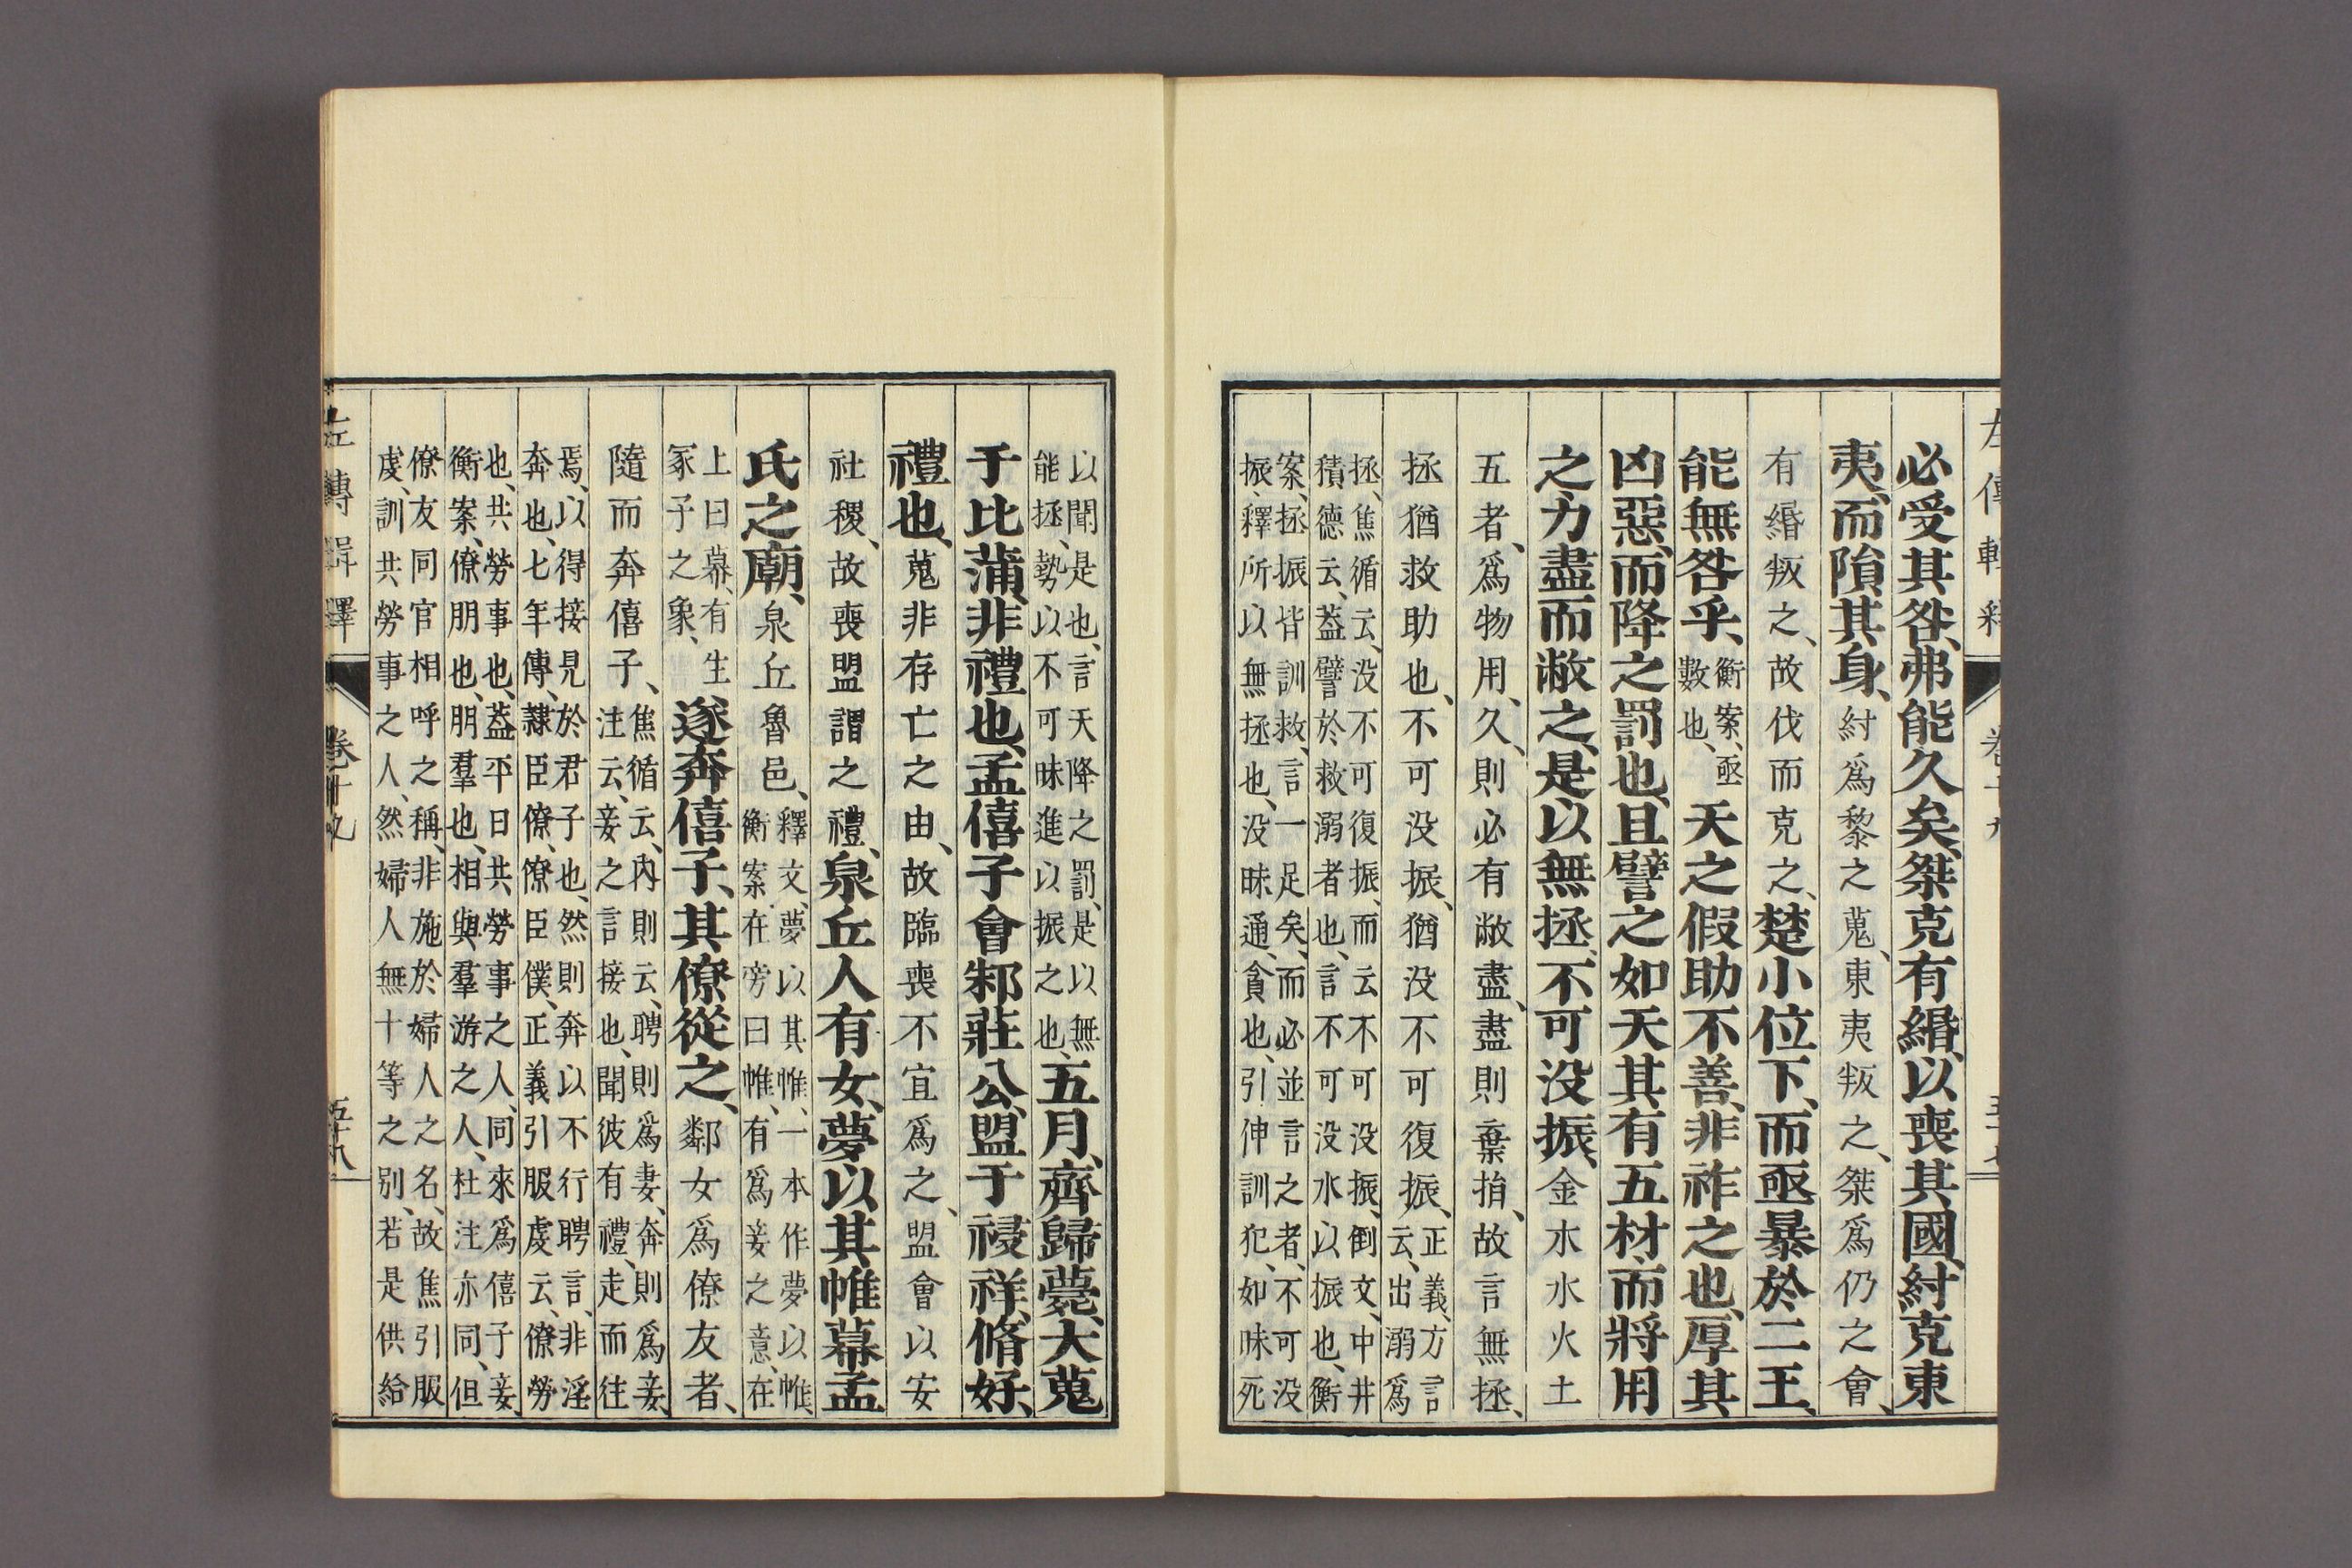 左傳輯釋 卷十九
必受其咎、弗能久矣、桀克有緡、以喪其國、紂克東
夷、而隕其身、紂爲黎之蒐、東夷叛之、桀爲仍之會、
有緡叛之、故伐而克之、楚小位下、而亟暴於二王、
能無咎乎、衡案、亟
數也、天之假助不善、非祚之也、厚其
凶惡、而降之罰也、且譬之如天其有五材、而將用
之力盡而敝之、是以無拯、不可没振、金木水火土
五者、爲物用、久則必有敝盡、盡則棄捐、故言無拯、
拯猶救助也、不可没振、猶没不可復振、正義、方言
云、出溺爲
拯、焦循云、没不可復振、而云不可没振、倒文、中井
積德云、蓋譬於救溺者也、言不可没水以振也、衡
案、拯振皆訓救、言一足矣、而必並言之者、不可没
振、釋所以無拯也、没昧通、貪也、引伸訓犯、如昧死
以聞是也、言天降之罰、是以無
能拯、勢以不可昧進以振之也、五月、齊歸薨、大蒐
于比蒲、非禮也、孟僖子會邾莊公、盟于祲祥、脩好、
禮也、蒐非存亡之由、故臨喪不宜爲之、盟會以安
社稷、故喪盟謂之禮、泉丘人有女、夢以其帷幕孟
氏之廟、泉丘魯邑、釋文、夢以其帷、一本作夢以帷、
衡案、在旁曰帷、有爲妾之意、在
上曰幕、有生
冢子之象、遂奔僖子、其僚從之、鄰女爲僚友者、
隨而奔僖子、焦循云、内則云、聘則爲妻、奔則爲妾、
注云、妾之言接也、聞彼有禮、走而往
焉、以得接見於君子也、然則奔以不行聘言、非淫
奔也、七年傳、隷臣僚、僚臣僕、正義引服虔云、僚勞
也、共勞事也、蓋平日共勞事之人、同來爲僖子妾、
衡案、僚朋也、朋羣也、相與羣游之人、杜注亦同、但
僚友同官相呼之稱、非施於婦人之名、故焦引服
虔、訓共勞事之人、然婦人無十等之別、若是供給
左傳輯釋 卷十九 五十八